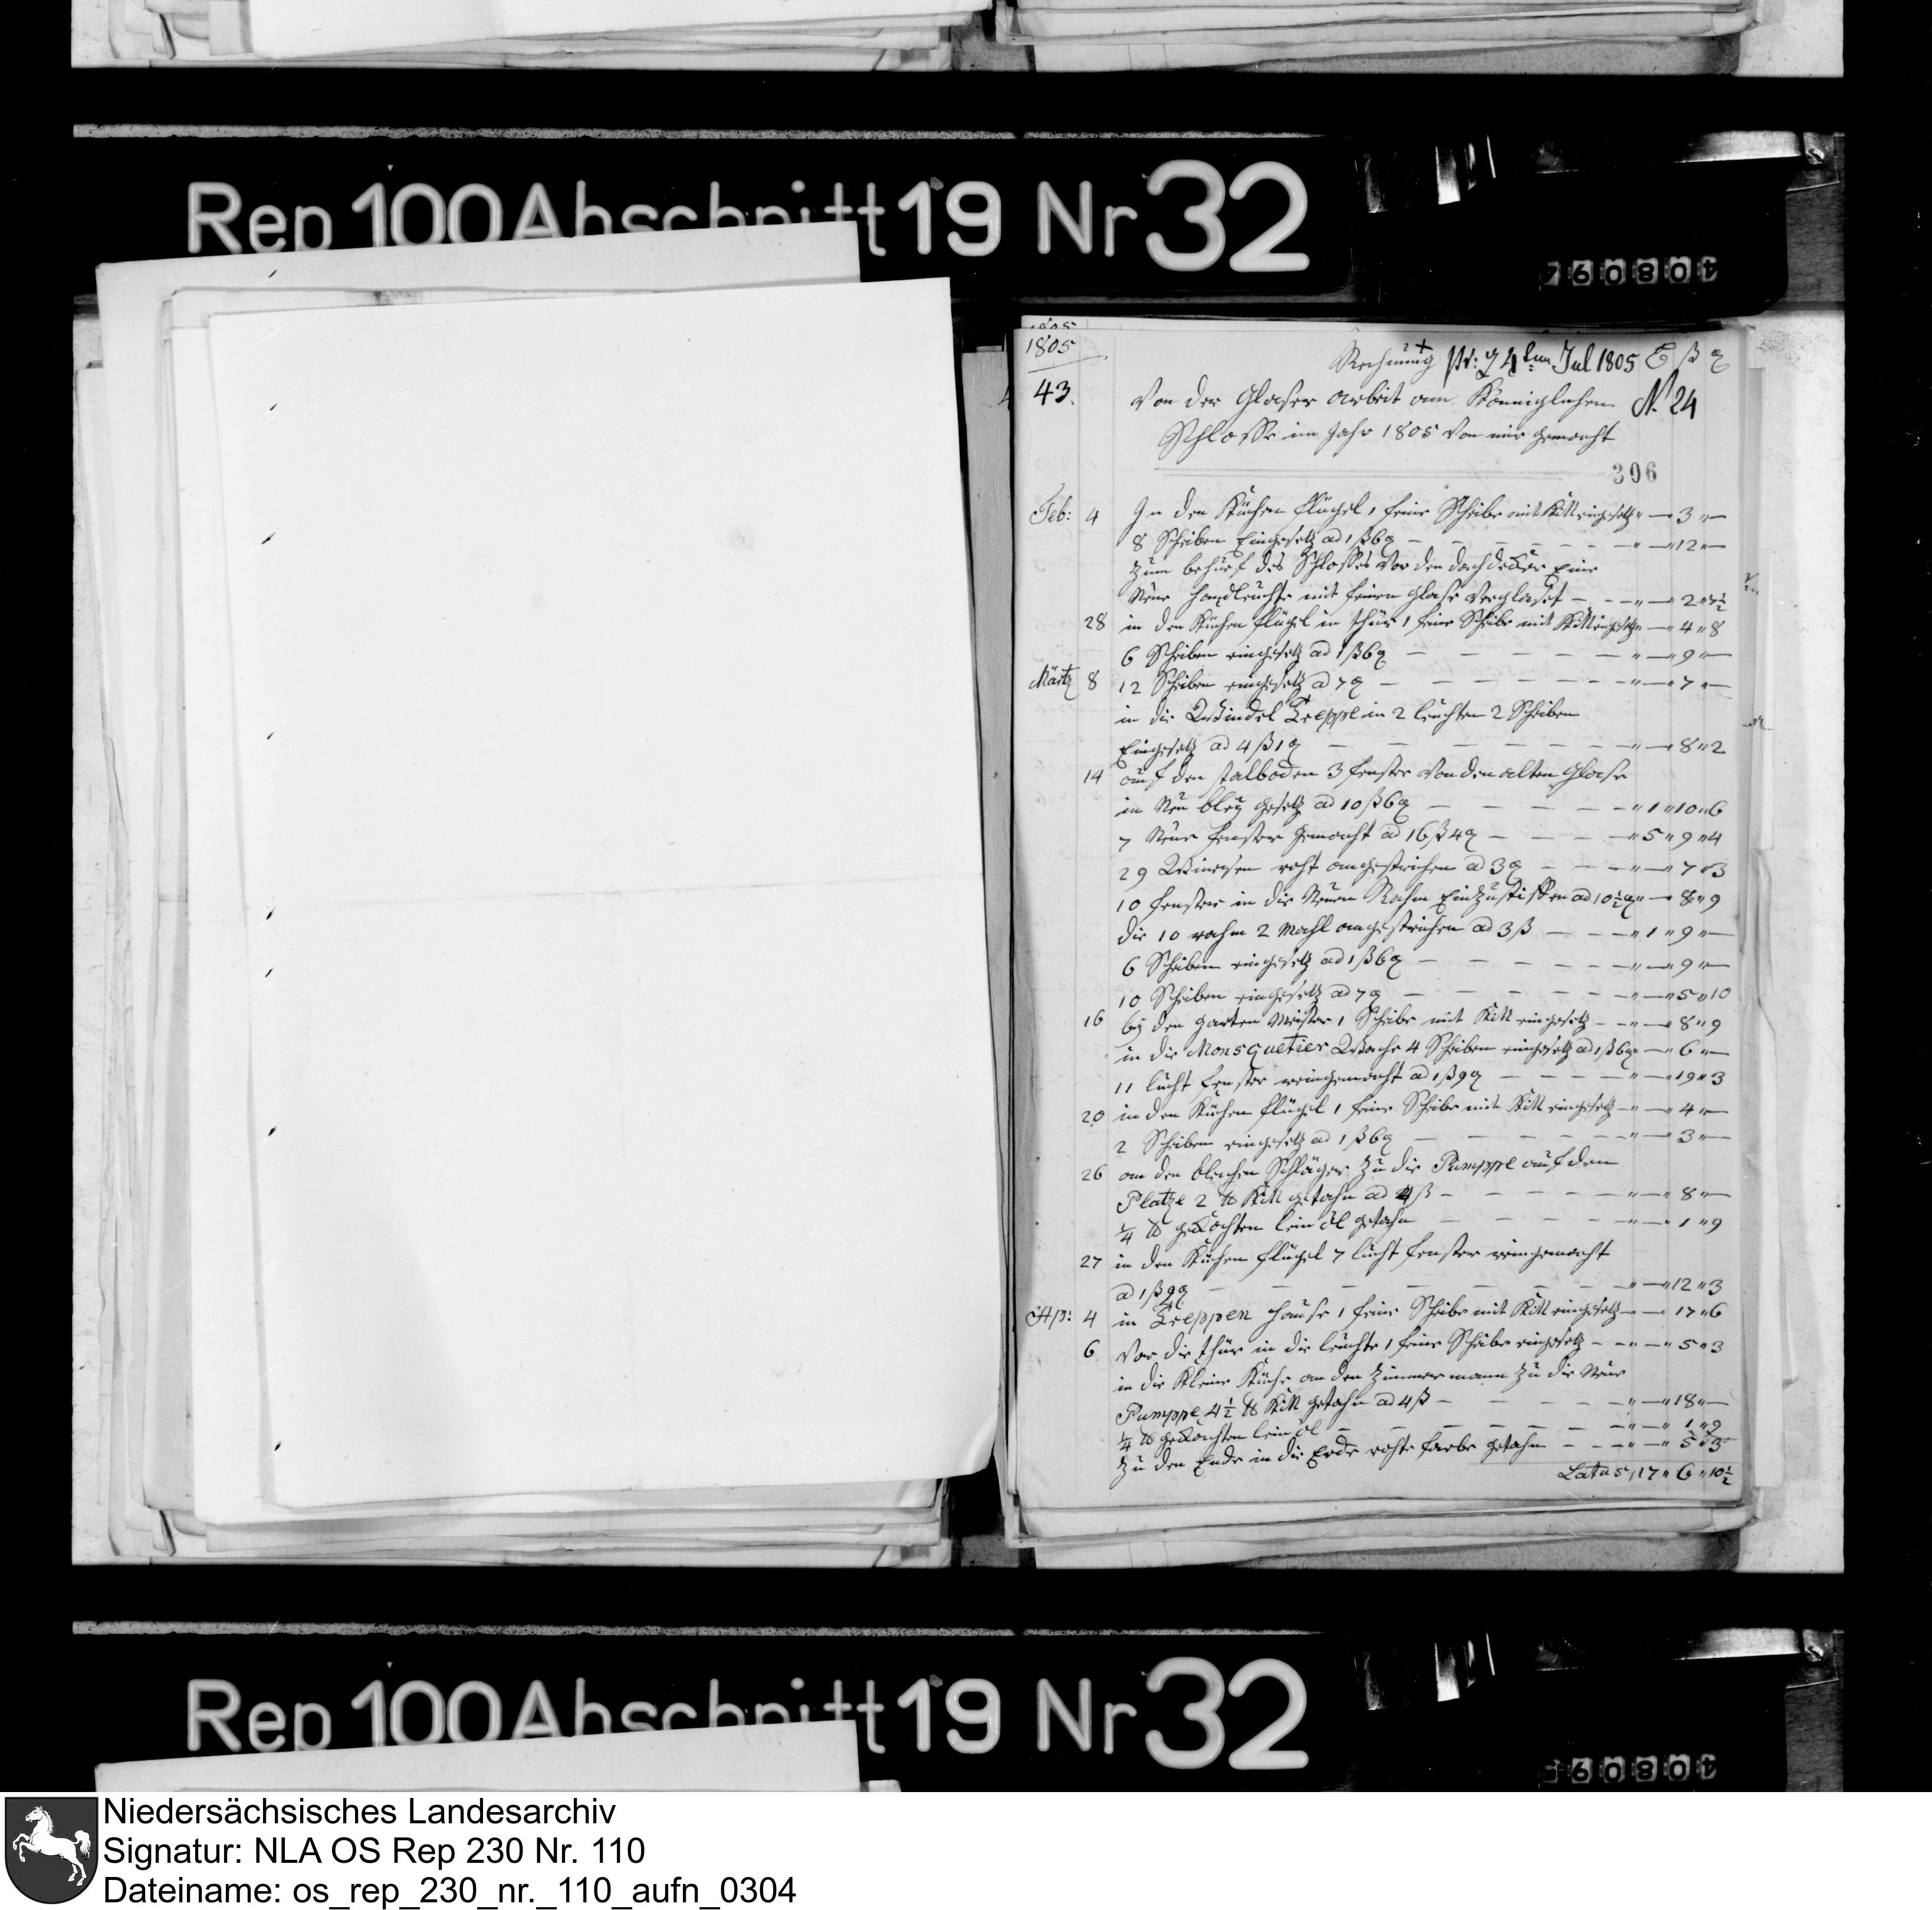 Rep 100 Abschnitt 19 Nr 32
408097
1805
1805
Rechnung pr: 4 Jul 1805 ß ₰
43. Von der Glaser arbeit am Königlichen N. 24
Schlosse im Jahr 1805 von mir gemacht
396
Feb: 4 In den Küchen flügel 1 feine Scheibe mit Kitt eingesetz " — 3 " —
8 Scheiben Eingesetz ad 1 ß 6 ₰ — " — 12 " —
Zum behuf des Schlosses vor den dachdecker Eine
Neue handleuchte mit feinen glase verglaset — " — 2 " 7½
28 in den Küchen flügel in thür 1 feine Scheibe mit Kitt eingesetz " — 4 " 8
6 Scheiben eingesetz ad 1 ß 6 ₰ — " — 9 " —
Märtz 8 12 Scheiben eingesetz ad 7 ₰ — " — 7 " —
in die Windel Treppe in 2 leuchten 2 Scheiben
Eingesetz ad 4 ß 1 ₰ — " — 8 " 2
14 auf den stalboden 3 fenster von den alten Glase
in Neu bley gesetz ad 10 ß 6 ₰ — " 1 " 10 " 6
7 Neue fenster gemacht ad 16 ß 4 ₰ — " 5 " 9 " 4
29 Windeisen roht angestrichen ad 3 ₰ — " — 7 " 3
10 fenster in die Neuen Rahm Einzustiften ad 10½ ₰ " — 8 " 9
die 10 rahm 2 Mahl angestrichen ad 3 ß — " 1 " 9 " —
6 Scheiben eingesetz ad 1 ß 6 ₰ — " — 9 " —
10 Scheiben eingesetz ad 7 ₰ — " — 5 " 10
16 by den garten Meister 1 Scheibe mit Kitt eingesetz — " — 8 " 9
in die Monsquetier Wache 4 Scheiben eingesetz ad 1 ß 6 ₰ " — 6 " —
11 lucht Fenster reingemacht ad 1 ß 9 ₰ — " — 19 " 3
20 in den Küchen flügel 1 feine Scheibe mit Kitt eingesetz — " — 4 " —
2 Scheiben eingesetz ad 1 ß 6 ₰ — " — 3 " —
26 an den blechen Schläger zu die Pumppe auf den
Platze 2 ℔ Kitt getahn ad 4 ß — " — 8 " —
¼ ℔ gekochten lein öl getahn — " — 1 " 9
27 in den Küchen flügel 7 lucht fenster reingemacht
ad 1 ß 9 ₰ — " — 12 " 3
Ap: 4 in Treppen hause 1 feine Scheibe mit Kitt eingesetz — " — 17 " 6
6 Vor die thür in die leuchte 1 feine Scheibe eingesetz — " — 5 " 3
in die Kleine Küche an den Zimmermann zu die Neue
Pumppe 4½ ℔ Kitt getahn ad 4 ß — " — 18 " —
¼ ℔ gekochten lein öl — " — 1 " 9
zu den Ende in die Erde rohte farbe getahn — " — 5 " 3
Latus 17 " 6 " 10½
Rep 100 Abschnitt 19 Nr 32
Niedersächsisches Landesarchiv
Signatur: NLA OS Rep 230 Nr. 110
Dateiname: os_rep_230_nr._110_aufn_0304